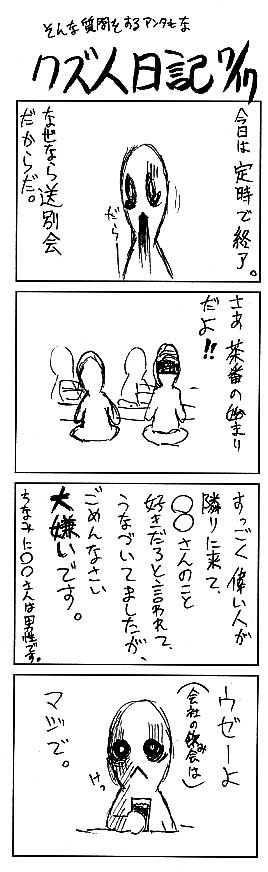 そんな質問をするアンタもな
クズ人日記 7/17
今日は定時で終了。
だら〜
なぜなら送別会
だからだ。
さあ 茶番の始まり
だよ!!
すっごく偉い人が
隣りに来て、
〇〇さんのこと
好きだろと言われて、
うなづいてましたが、
ごめんなさい
大嫌いです。
ちなみに〇〇さんは男性です。
ウゼーよ
(会社の飲み会は)
けっ
マジで。